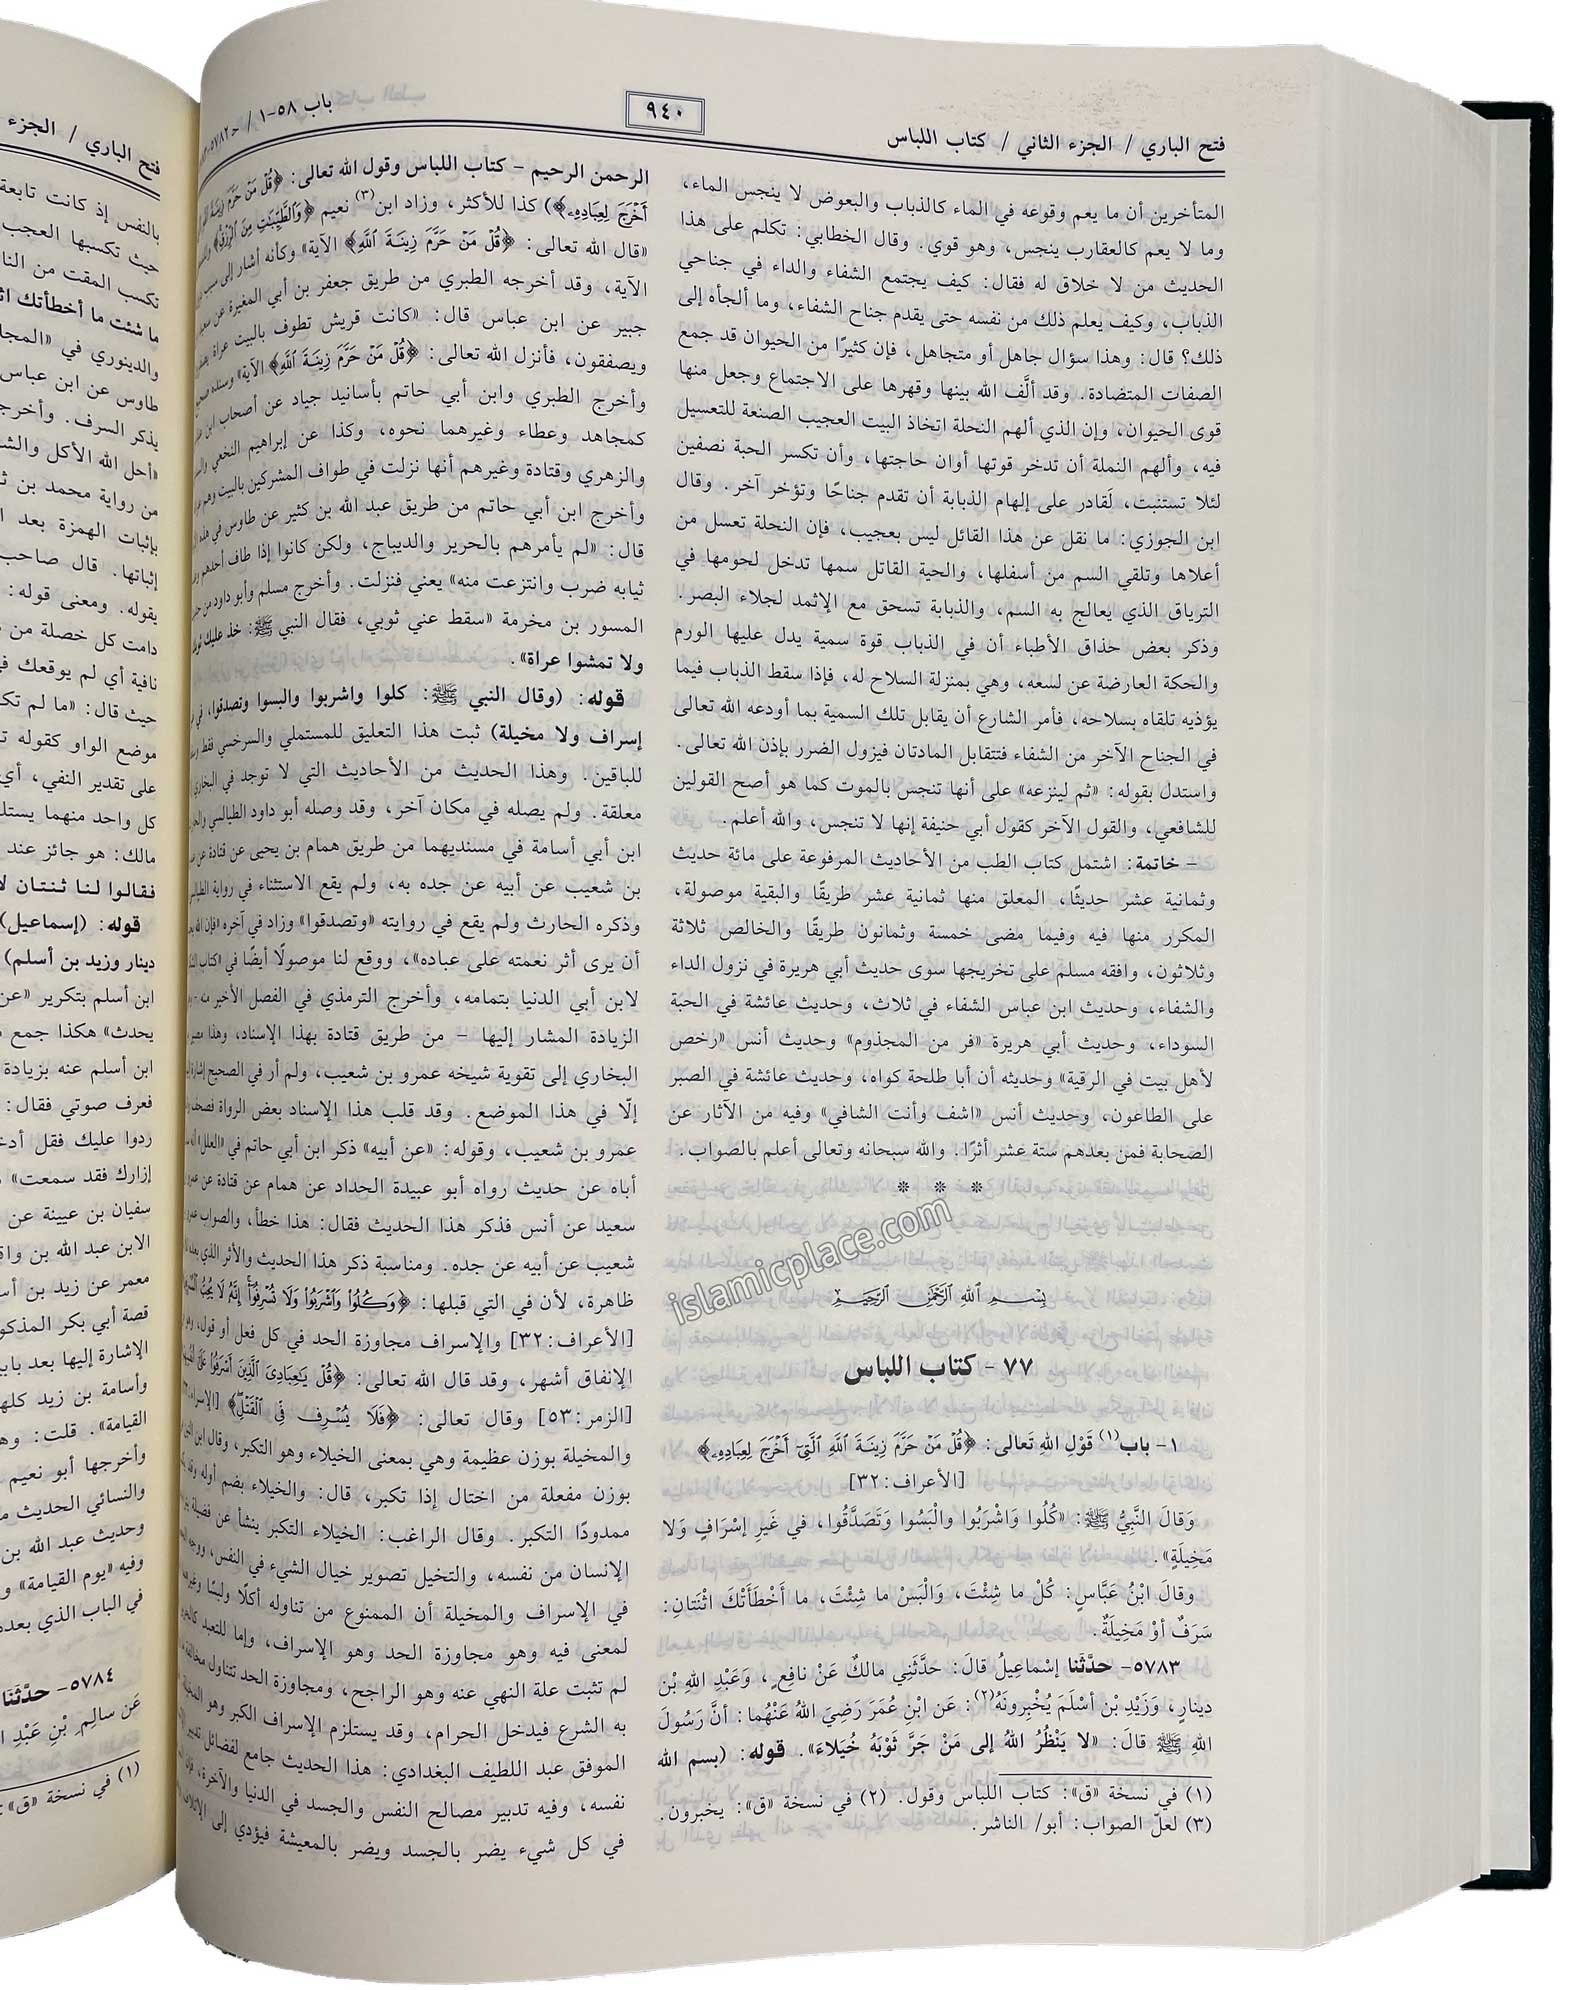 فتح الباري / الجزء الثاني / كتاب اللباس
٩٤٠
باب ٥٨-١ / ح٥٧٨٢-
المتأخرين أن ما يعم وقوعه في الماء كالذباب والبعوض لا ينجس الماء،
وما لا يعم كالعقارب ينجس، وهو قوي. وقال الخطابي: تكلم على هذا
الحديث من لا خلاق له فقال: كيف يجتمع الشفاء والداء في جناحي
الذباب، وكيف يعلم ذلك من نفسه حتى يقدم جناح الشفاء، وما ألجأه إلى
ذلك؟ قال: وهذا سؤال جاهل أو متجاهل، فإن كثيرًا من الحيوان قد جمع
الصفات المتضادة. وقد ألَّف الله بينها وقهرها على الاجتماع وجعل منها
قوى الحيوان، وإن الذي ألهم النحلة اتخاذ البيت العجيب الصنعة للتعسيل
فيه، وألهم النملة أن تدخر قوتها أوان حاجتها، وأن تكسر الحبة نصفين
لئلا تستنبت، لَقادر على إلهام الذبابة أن تقدم جناحًا وتؤخر آخر. وقال
ابن الجوزي: ما نقل عن هذا القائل ليس بعجيب، فإن النحلة تعسل من
أعلاها وتلقي السم من أسفلها، والحية القاتل سمها تدخل لحومها في
الترياق الذي يعالج به السم، والذبابة تسحق مع الإثمد لجلاء البصر.
وذكر بعض حذاق الأطباء أن في الذباب قوة سمية يدل عليها الورم
والحكة العارضة عن لسعه، وهي بمنزلة السلاح له، فإذا سقط الذباب فيما
يؤذيه تلقاه بسلاحه، فأمر الشارع أن يقابل تلك السمية بما أودعه الله تعالى
في الجناح الآخر من الشفاء فتتقابل المادتان فيزول الضرر بإذن الله تعالى.
واستدل بقوله: «ثم لينزعه» على أنها تنجس بالموت كما هو أصح القولين
للشافعي، والقول الآخر كقول أبي حنيفة إنها لا تنجس، والله أعلم.
- خاتمة: اشتمل كتاب الطب من الأحاديث المرفوعة على مائة حديث
وثمانية عشر حديثًا، المعلق منها ثمانية عشر طريقًا والبقية موصولة،
المكرر منها فيه وفيما مضى خمسة وثمانون طريقًا والخالص ثلاثة
وثلاثون، وافقه مسلم على تخريجها سوى حديث أبي هريرة في نزول الداء
والشفاء، وحديث ابن عباس الشفاء في ثلاث، وحديث عائشة في الحبة
السوداء، وحديث أبي هريرة «فر من المجذوم» وحديث أنس «رخص
لأهل بيت في الرقية» وحديثه أن أبا طلحة كواه، وحديث عائشة في الصبر
على الطاعون، وحديث أنس «اشف وأنت الشافي» وفيه من الآثار عن
الصحابة فمن بعدهم ستة عشر أثرًا. والله سبحانه وتعالى أعلم بالصواب.
* * *
بسم الله الرحمن الرحيم
٧٧ - كتاب اللباس
١- باب(١) قَوْلِ اللهِ تَعالى: ﴿قُلْ مَنْ حَرَّمَ زِينَةَ اللَّهِ الَّتِي أَخْرَجَ لِعِبَادِهِ﴾
[الأعراف:٣٢]
وَقالَ النَّبِيُّ ﷺ: «كُلُوا وَاشْرَبُوا والْبَسُوا وَتَصَدَّقُوا، في غَيرِ إسْرَافٍ وَلا
مَخِيلَةٍ».
وَقالَ ابْنُ عَبَّاسٍ: كُلْ ما شِئْتَ، وَالْبَسْ ما شِئْتَ، ما أَخْطَأَتْكَ اثْنَتَانِ:
سَرَفٌ أَوْ مَخِيلَةٌ.
٥٧٨٣- حدَّثَنا إسْماعِيلُ قالَ: حَدَّثَنِي مالكٌ عَنْ نافِعٍ، وَعَبْدِ اللهِ بْنِ
دِينارٍ، وَزَيْدِ بْنِ أَسْلَمَ يُخْبِرُونَهُ(٢): عَن ابْنِ عُمَرَ رَضِيَ اللهُ عَنْهُما: أنَّ رَسُولَ
اللهِ ﷺ قالَ: «لا يَنْظُرُ اللهُ إلى مَنْ جَرَّ ثَوْبَهُ خُيَلاءَ». قوله: (بسم الله
(١) في نسخة «ق»: كتاب اللباس وقول. (٢) في نسخة «ق»: يخبرون.
(٣) لعلّ الصواب: أبو/ الناشر.
الرحمن الرحيم - كتاب اللباس وقول الله تعالى: ﴿قُلْ مَنْ حَرَّمَ زِينَةَ اللَّهِ
أَخْرَجَ لِعِبَادِهِ﴾) كذا للأكثر، وزاد ابن(٣) نعيم ﴿وَالطَّيِّبَاتِ مِنَ الرِّزْقِ﴾
«قال الله تعالى: ﴿قُلْ مَنْ حَرَّمَ زِينَةَ اللَّهِ﴾ الآية» وكأنه أشار إلى سبب
الآية، وقد أخرجه الطبري من طريق جعفر بن أبي المغيرة عن سعيد
جبير عن ابن عباس قال: «كانت قريش تطوف بالبيت عراة
ويصفقون، فأنزل الله تعالى: ﴿قُلْ مَنْ حَرَّمَ زِينَةَ اللَّهِ﴾ الآية» وسنده صحيح
وأخرج الطبري وابن أبي حاتم بأسانيد جياد عن أصحاب ابن
كمجاهد وعطاء وغيرهما نحوه، وكذا عن إبراهيم النخعي
والزهري وقتادة وغيرهم أنها نزلت في طواف المشركين بالبيت وهم
وأخرج ابن أبي حاتم من طريق عبد الله بن كثير عن طاوس في هذه
قال: «لم يأمرهم بالحرير والديباج، ولكن كانوا إذا طاف أحدهم
ثيابه ضرب وانتزعت منه» يعني فنزلت. وأخرج مسلم وأبو داود من
المسور بن مخرمة «سقط عني ثوبي، فقال النبي ﷺ: خذ عليك ثوبك
ولا تمشوا عراة».
قوله: (وقال النبي ﷺ: كلوا واشربوا والبسوا وتصدقوا، في
إسراف ولا مخيلة) ثبت هذا التعليق للمستملي والسرخسي فقط
للباقين. وهذا الحديث من الأحاديث التي لا توجد في البخاري
معلقة. ولم يصله في مكان آخر، وقد وصله أبو داود الطيالسي
ابن أبي أسامة في مسنديهما من طريق همام بن يحيى عن قتادة عن
بن شعيب عن أبيه عن جده به، ولم يقع الاستثناء في رواية الطيالسي
وذكره الحارث ولم يقع في روايته «وتصدقوا» وزاد في آخره «فإن الله
أن يرى أثر نعمته على عباده»، ووقع لنا موصولًا أيضًا في «كتاب
لابن أبي الدنيا بتمامه، وأخرج الترمذي في الفصل الأخير منه -
الزيادة المشار إليها - من طريق قتادة بهذا الإسناد، وهذا
البخاري إلى تقوية شيخه عمرو بن شعيب، ولم أر في الصحيح إشارة
إلّا في هذا الموضع. وقد قلب هذا الإسناد بعض الرواة
عمرو بن شعيب، وقوله: «عن أبيه» ذكر ابن أبي حاتم في «العلل»
أباه عن حديث رواه أبو عبيدة الحداد عن همام عن قتادة عن
سعيد عن أنس فذكر هذا الحديث فقال: هذا خطأ، والصواب
شعيب عن أبيه عن جده. ومناسبة ذكر هذا الحديث والأثر الذي بعده
ظاهرة، لأن في التي قبلها: ﴿وَكُلُوا وَاشْرَبُوا وَلَا تُسْرِفُوا إِنَّهُ لَا يُحِبُّ
[الأعراف:٣٢] والإسراف مجاوزة الحد في كل فعل أو قول، وهو
الإنفاق أشهر، وقد قال الله تعالى: ﴿قُلْ يَاعِبَادِيَ الَّذِينَ أَسْرَفُوا عَلَى
[الزمر:٥٣] وقال تعالى: ﴿فَلَا يُسْرِف فِّي الْقَتْلِ﴾ [الإسراء:
والمخيلة بوزن عظيمة وهي بمعنى الخيلاء وهو التكبر، وقال ابن التين
بوزن مفعلة من اختال إذا تكبر، قال: والخيلاء بضم أوله وقد
ممدودًا التكبر. وقال الراغب: الخيلاء التكبر ينشأ عن فضيلة
الإنسان من نفسه، والتخيل تصوير خيال الشيء في النفس، ووجه
في الإسراف والمخيلة أن الممنوع من تناوله أكلًا ولبسًا
لمعنى فيه وهو مجاوزة الحد وهو الإسراف، وإما للتعبد
لم تثبت علة النهي عنه وهو الراجح، ومجاوزة الحد تتناول مخالفة
به الشرع فيدخل الحرام، وقد يستلزم الإسراف الكبر وهو المخيلة
الموفق عبد اللطيف البغدادي: هذا الحديث جامع لفضائل تدبير
نفسه، وفيه تدبير مصالح النفس والجسد في الدنيا والآخرة،
في كل شيء يضر بالجسد ويضر بالمعيشة فيؤدي إلى الإتلاف
فتح الباري / الجزء
بالنفس إذ كانت تابعة
حيث تكسبها العجب
تكسب المقت من النا
ما شئت ما أخطأتك
والدينوري في «المجا
طاوس عن ابن عباس
يذكر السرف. وأخرج
«أحل الله الأكل والش
من رواية محمد بن
بإثبات الهمزة بعد
إثباتها. قال صاحب
بقوله. ومعنى قوله:
دامت كل خصلة من
نافية أي لم يوقعك
حيث قال: «ما لم تك
موضع الواو كقوله
على تقدير النفي، أي
كل واحد منهما يستل
مالك: هو جائز عند
فقالوا لنا ثنتان لا
قوله: (إسماعيل)
دينار وزيد بن أسلم)
ابن أسلم بتكرير «عن
يحدث» هكذا جمع
ابن أسلم عنه بزيادة
فعرف صوتي فقال:
ردوا عليك فقل
إزارك فقد سمعت»
سفيان بن عيينة عن
الابن عبد الله بن
معمر عن زيد بن
قصة أبي بكر المذكو
الإشارة إليها بعد
وأسامة بن زيد كلهم
القيامة». قلت:
وأخرجها أبو نعيم
والنسائي الحديث
وحديث عبد الله بن
وفيه «يوم القيامة»
في الباب الذي بعده
٥٧٨٤- حدَّثَنَا
عَن سالِمِ بْنِ عَبْدِ
(١) في نسخة «ق»:
islamicplace.com